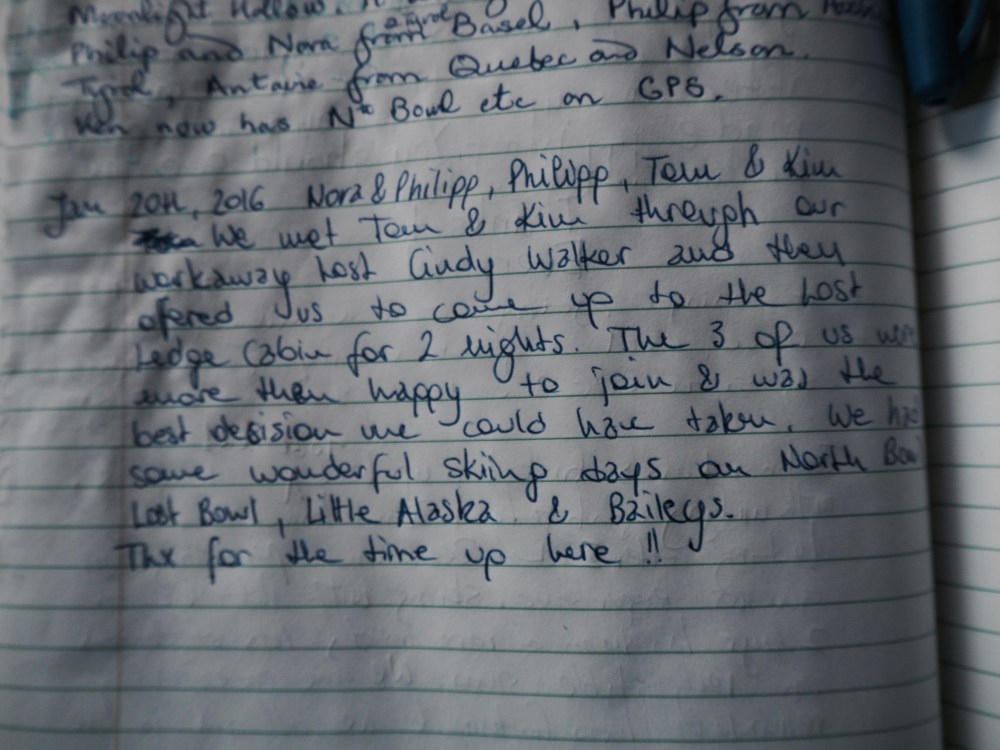 Moonlight Hollow.
Philip and Nora from Basel, Philip from
Tyrol, Antoine from Quebec and Nelson.
Ken now has Nth Bowl etc on GPS.
Jan 20th, 2016 Nora & Philipp, Philipp, Tom & Kim
We met Tom & Kim through our
workaway host Cindy Walker and they
ofered us to come up to the Lost
Ledge Cabin for 2 nights. The 3 of us wer
more then happy to join & was the
best desision we could have taken. We had
some wonderful skiing days on North Bow
Lost Bowl, Little Alaska & Baileys.
Thx for the time up here !!